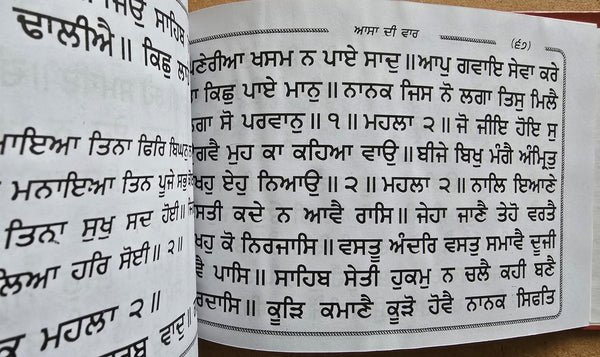 ਢਾਲੀਐ॥ ਕਿਛੁ
ਤਿਨਾ ਫਿਰਿ
ਮਨਾਇਆ ਤਿਨ ਪੂਜੇ ਸਭੁ
ਤਿਨਾ ਸੁਖੁ ਸਦ ਹੋਈ॥
ਹਰਿ ਸੋਈ॥ ੨॥
ਮਹਲਾ ੨॥
ਆਸਾ ਦੀ ਵਾਰ
(੬੭)
ਖਸਮ ਨ ਪਾਏ ਸਾਦੁ॥ ਆਪੁ ਗਵਾਇ ਸੇਵਾ ਕਰੇ
ਕਿਛੁ ਪਾਏ ਮਾਨੁ॥ ਨਾਨਕ ਜਿਸ ਨੋ ਲਗਾ ਤਿਸੁ ਮਿਲੈ
ਲਗਾ ਸੋ ਪਰਵਾਨੁ॥ ੧॥ ਮਹਲਾ ੨॥ ਜੋ ਜੀਇ ਹੋਇ ਸੁ
ਉਗਵੈ ਮੁਹ ਕਾ ਕਹਿਆ ਵਾਉ॥ ਬੀਜੇ ਬਿਖੁ ਮੰਗੈ ਅੰਮ੍ਰਿਤੁ
ਏਹੁ ਨਿਆਉ॥ ੨॥ ਮਹਲਾ ੨॥ ਨਾਲਿ ਇਆਣੇ
ਕਦੇ ਨ ਆਵੈ ਰਾਸਿ॥ ਜੇਹਾ ਜਾਣੈ ਤੇਹੋ ਵਰਤੈ
ਕੋ ਨਿਰਜਾਸਿ॥ ਵਸਤੂ ਅੰਦਰਿ ਵਸਤੁ ਸਮਾਵੈ ਦੂਜੀ
ਪਾਸਿ॥ ਸਾਹਿਬ ਸੇਤੀ ਹੁਕਮੁ ਨ ਚਲੈ ਕਹੀ ਬਣੈ
ਕੂੜਿ ਕਮਾਣੈ ਕੂੜੋ ਹੋਵੈ ਨਾਨਕ ਸਿਫਤਿ